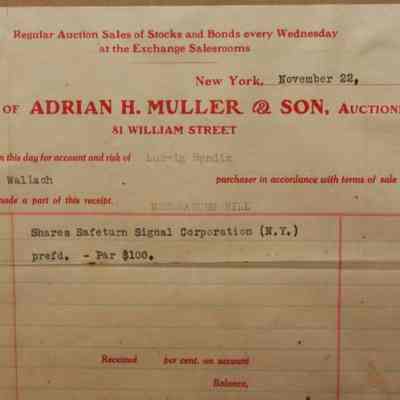 Regular Auction Sales of Stocks and Bonds every Wednesday
at the Exchange Salesrooms
New York, November 22,
OF ADRIAN H. MULLER & SON, AUCTION
81 WILLIAM STREET
n this day for account and risk of Ludwig
Wallach purchaser in accordance with terms of sale
made a part of this receipt.
MEMORANDUM BILL
Shares Safeturn Signal Corporation (N.Y.)
prefd. - Par $100.
Received per cent. on account
Balance,